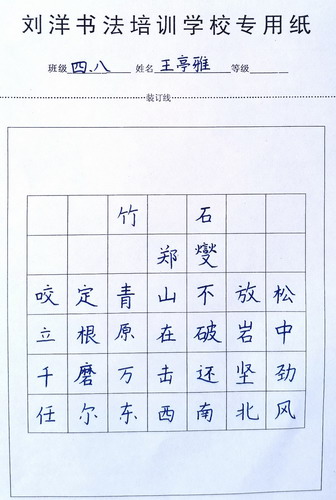 刘洋书法培训学校专用纸
班级 四.八 姓名 王亭雅 等级
装订线
竹 石
郑 燮
咬 定 青 山 不 放 松
立 根 原 在 破 岩 中
千 磨 万 击 还 坚 劲
任 尔 东 西 南 北 风